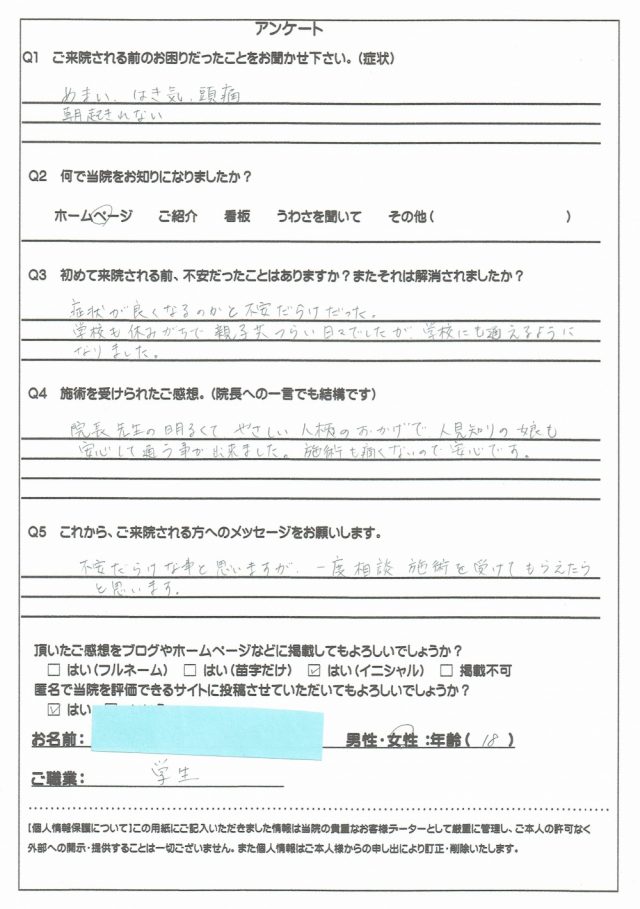 アンケート
Q1 ご来院される前のお困りだったことをお聞かせ下さい。(症状)
めまい、はき気、頭痛
朝起きれない
Q2 何で当院をお知りになりましたか？
ホームページ ご紹介 看板 うわさを聞いて その他( )
Q3 初めて来院される前、不安だったことはありますか？またそれは解消されましたか？
症状が良くなるのかと不安だらけだった。
学校も休みがちで親子共つらい日々でしたが、学校にも通えるように
なりました。
Q4 施術を受けられたご感想。(院長への一言でも結構です)
院長先生の明るくて やさしい人柄のおかげで人見知りの娘も
安心して通う事が出来ました。施術も痛くないので安心です。
Q5 これから、ご来院される方へのメッセージをお願いします。
不安だらけな事と思いますが、一度相談 施術を受けてもらえたら
と思います。
頂いたご感想をブログやホームページなどに掲載してもよろしいでしょうか？
□ はい(フルネーム) □ はい(苗字だけ) ☑ はい(イニシャル) □ 掲載不可
匿名で当院を評価できるサイトに投稿させていただいてもよろしいでしょうか？
☑ はい
お名前： 男性・女性：年齢( 18 )
ご職業： 学生
【個人情報保護について】この用紙にご記入いただきました情報は当院の貴重なお客様データーとして厳重に管理し、ご本人の許可なく
外部への開示・提供することは一切ございません。また個人情報はご本人様からの申し出により訂正・削除いたします。